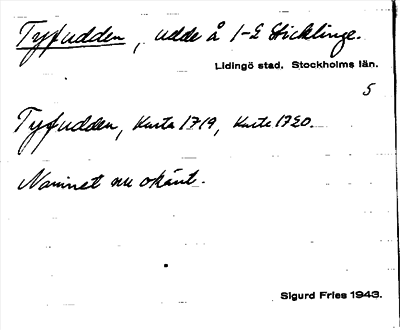 Tyfudden, udde å 1-2 Sticklinge.
Lidingö stad, Stockholms län.
5
Tyfudden, Karta 1719, Karta 1720.
Namnet nu okänt.
Sigurd Fries 1943.